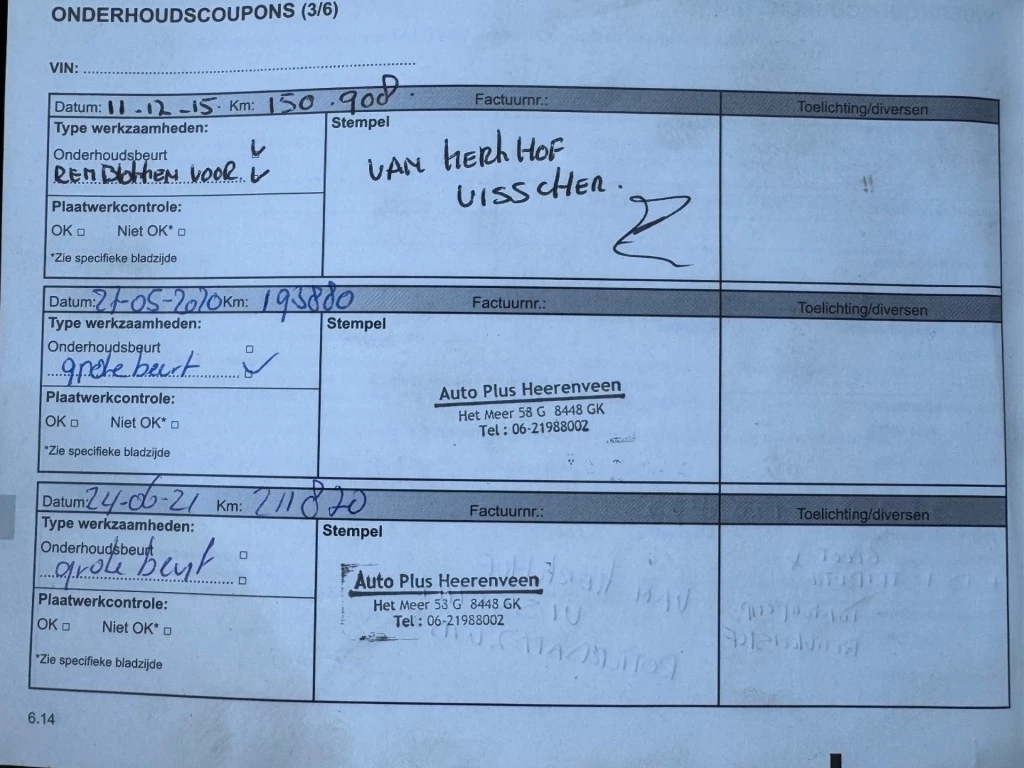 ONDERHOUDSCOUPONS (3/6)
VIN:
Datum: 11-12-15. Km: 150.908. Factuurnr.: Toelichting/diversen
Type werkzaamheden:
Stempel
Onderhoudsbeurt
REMBLOKKEN VOOR
VAN KERKHOF
VISSCHER.
Plaatwerkcontrole:
OK Niet OK*
*Zie specifieke bladzijde
Datum: 21-05-2020 Km: 193880 Factuurnr.: Toelichting/diversen
Type werkzaamheden:
Stempel
Onderhoudsbeurt
grote beurt
Auto Plus Heerenveen
Het Meer 58 G 8448 GK
Tel : 06-21988002
Plaatwerkcontrole:
OK Niet OK*
*Zie specifieke bladzijde
Datum: 24-06-21 Km: 211820 Factuurnr.: Toelichting/diversen
Type werkzaamheden:
Stempel
Onderhoudsbeurt
grote beurt
Auto Plus Heerenveen
Het Meer 58 G 8448 GK
Tel : 06-21988002
Plaatwerkcontrole:
OK Niet OK*
*Zie specifieke bladzijde
6.14